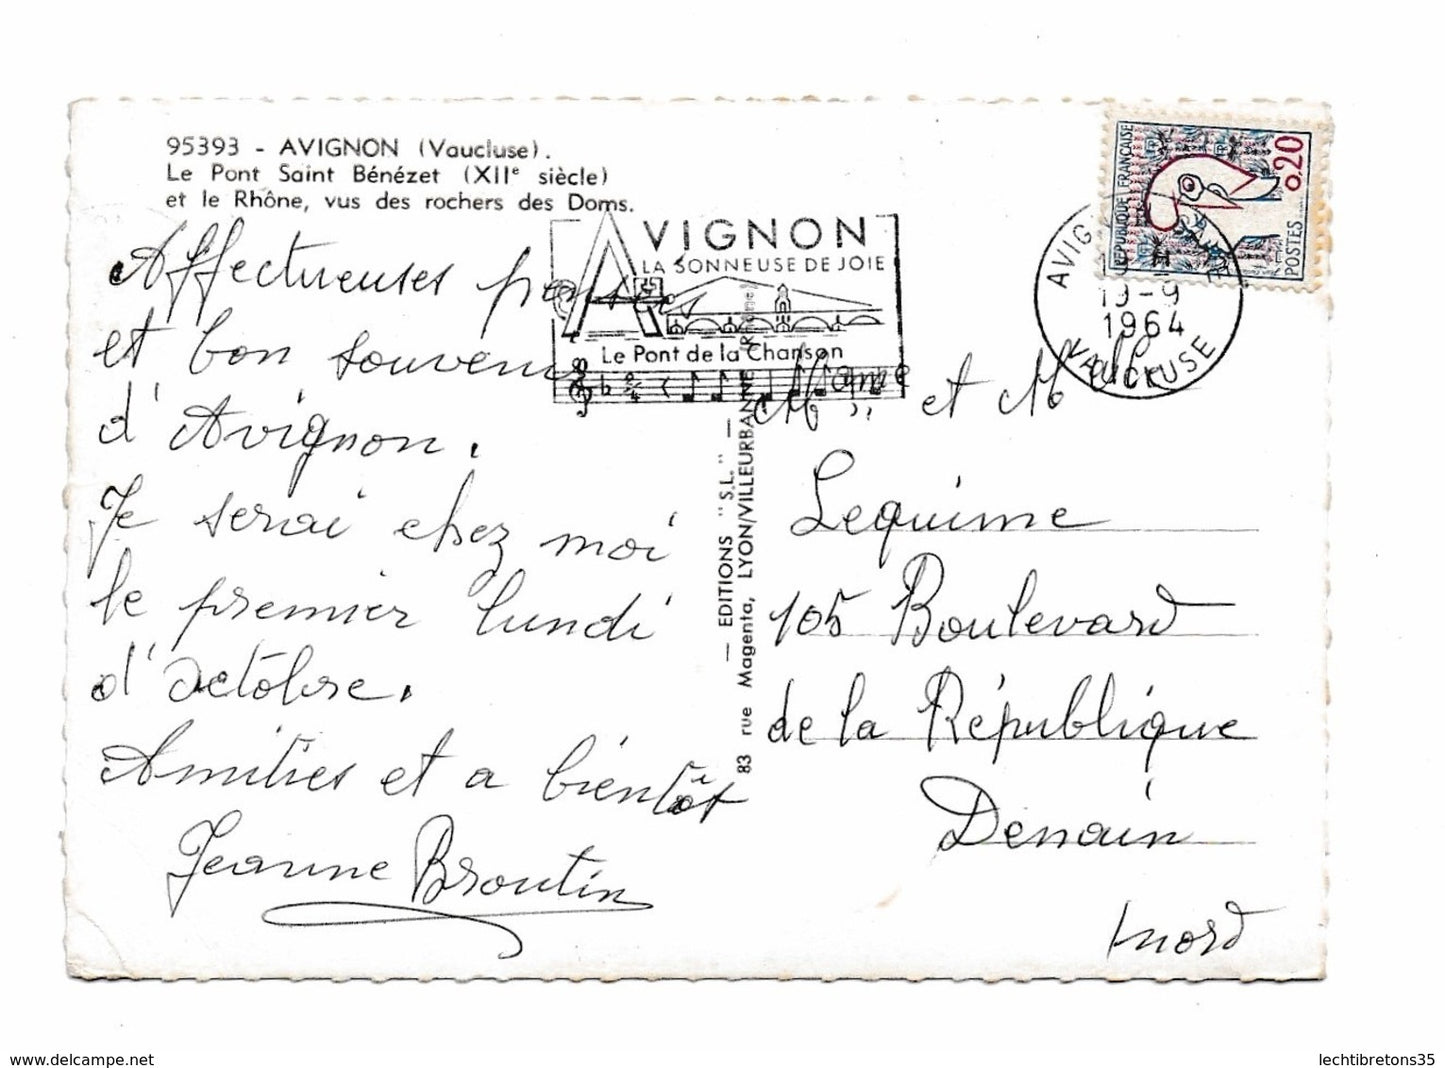 95393 - AVIGNON (Vaucluse).
Le Pont Saint Bénézet (XIIe siècle)
et le Rhône, vus des rochers des Doms.
Affectueuses
et bon souvenir
d'Avignon.
Je serai chez moi
le premier lundi
d'octobre.
Amitiés et a bientôt
Jeanne Broutin
AVIGNON
LA SONNEUSE DE JOIE
Le Pont de la Chanson
— EDITIONS "S.L." —
83 rue Magenta, LYON/VILLEURBANNE (Rhône)
REPUBLIQUE FRANÇAISE
0,20
POSTES
19-9
1964
VAUCLUSE
Mme et Mlle
Lequime
105 Boulevard
de la République
Denain
Nord
www.delcampe.net
lechtibretons35